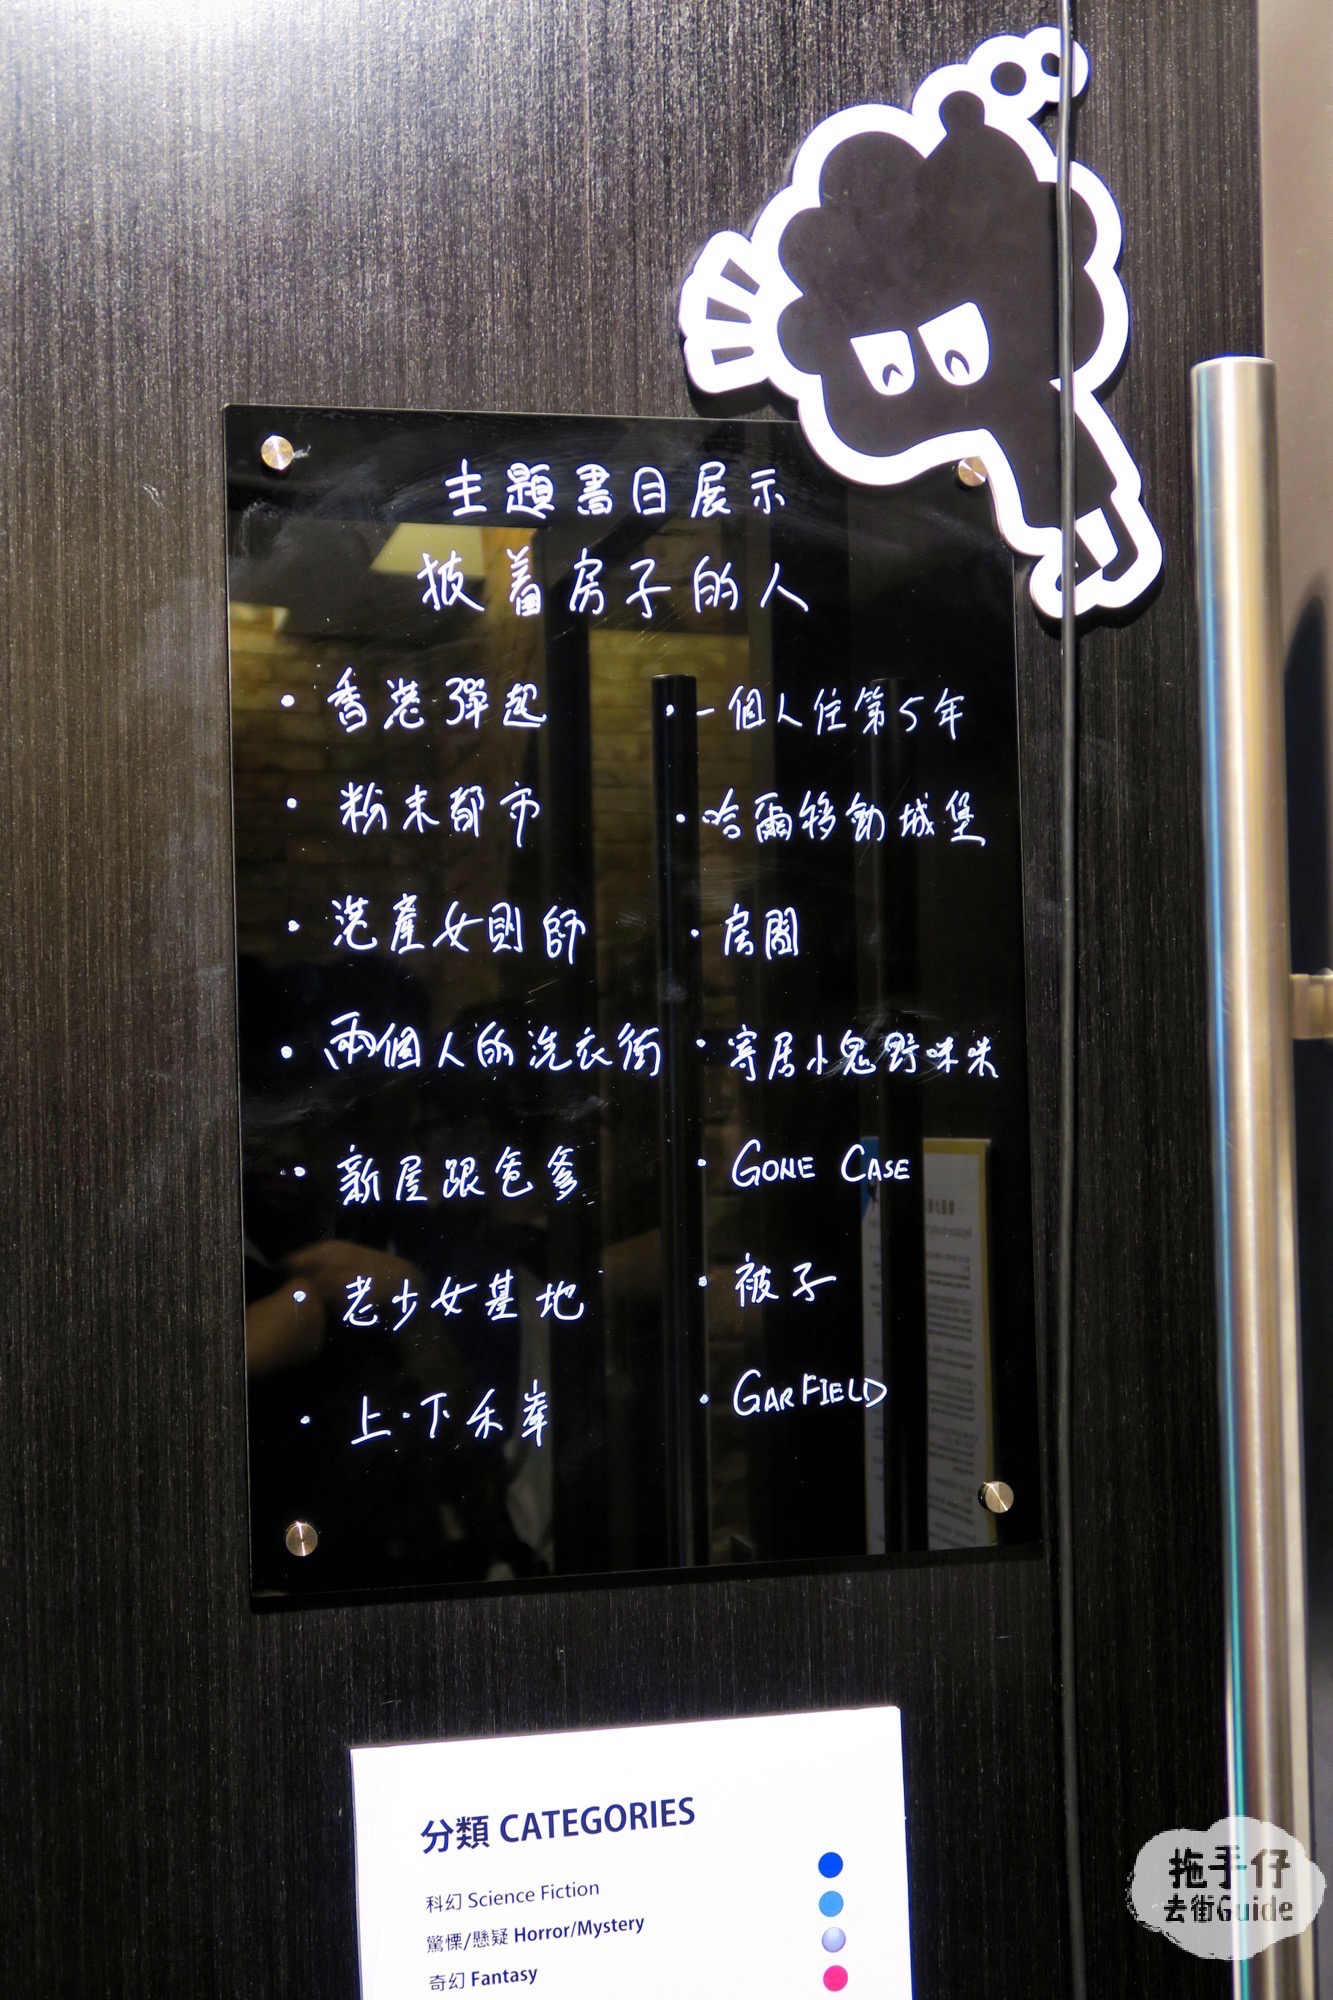 主題書目展示
披着房子的人
· 香港彈起
· 粉末都市
· 港產女則師
· 兩個人的洗衣街
· 新屋跟爸爹
· 老少女基地
· 上·下禾輋
· 一個人住第5年
· 哈爾移動城堡
· 房間
· 寄居小鬼野咪咪
· GONE CASE
· 被子
· GARFIELD
分類 CATEGORIES
科幻 Science Fiction
驚慄/懸疑 Horror/Mystery
奇幻 Fantasy
拖手仔
去街Guide